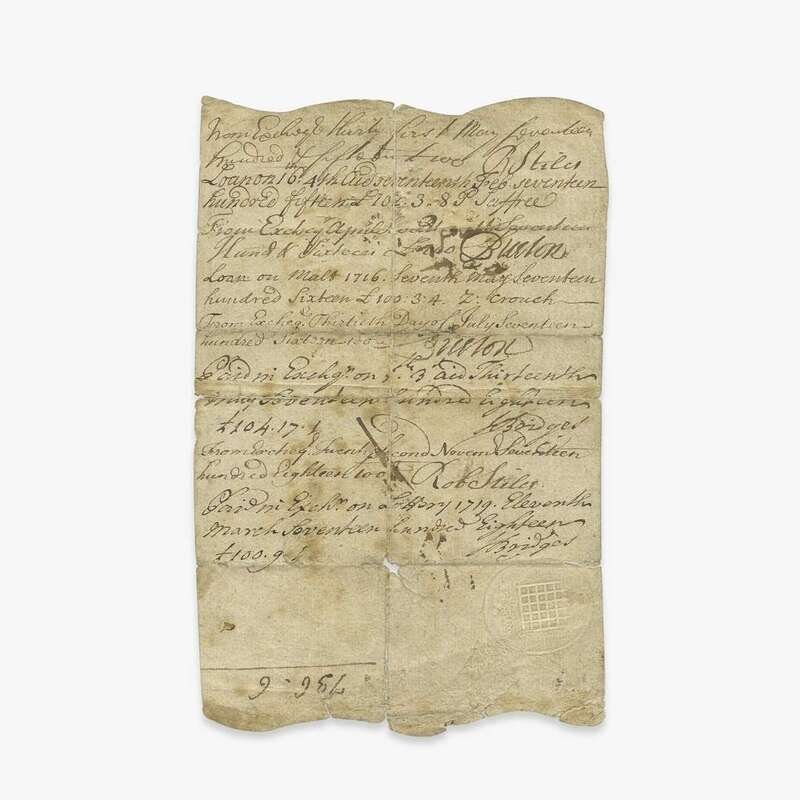 From Excheqr Thirty first May Seventeen
hundred & fifteen two R Stiles
Loan on 16th 4th aid seventeenth Feb seventeen
hundred fifteen £ 102. 3. 8 P Jaffree
From Excheqr April Seventeen
Hund & Sixteen Buxton
Loan on Malt 1716. Seventh May Seventeen
hundred Sixteen £ 100. 3. 4. Z: Crouch
From Excheqr Thirtieth Day of July Seventeen
hundred Sixteen 100 Buxton
Paid in Excheqr on ye 3s aid Thirteenth
Seventeen hundred Eighteen
£ 104. 17. 1 Bridges
From Excheqr Twenty Second Novem Seventeen
hundred Eighteen 100 Rob Stiles
Paid in Excheqr on 1719. Eleventh
March Seventeen hundred Eighteen
£ 100. 9. Bridges